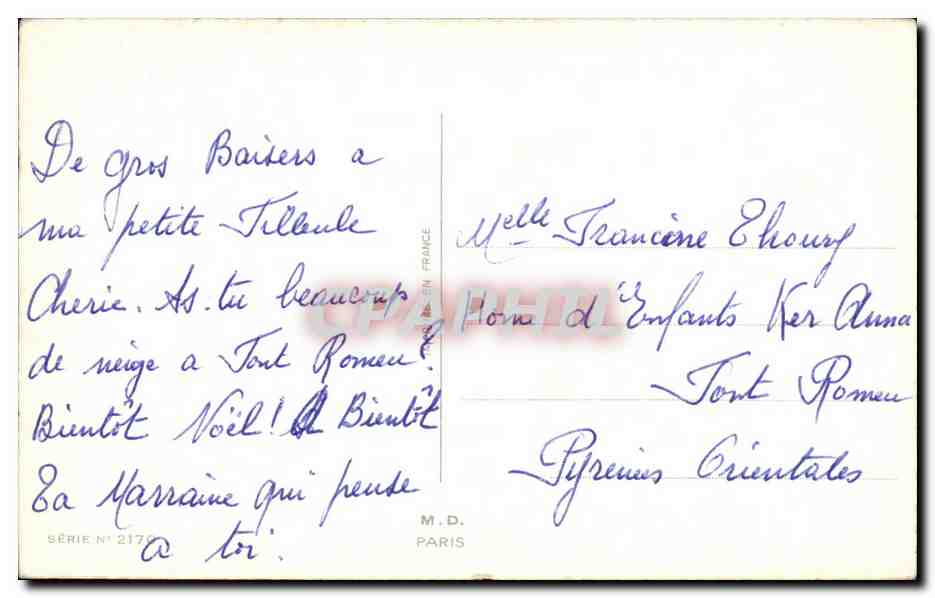 De gros Baisers a
ma petite Filleule
Cherie. As-tu beaucoup
de neige a Font Romeu?
Bientôt Noël! A Bientôt
Ta Marraine qui pense
a toi.
Melle Francine Ehoury
Home d'Enfants Ker Anna
Font Romeu
Pyrenées Orientales
EN FRANCE
CPAPHIL
SÉRIE N° 2170
M.D.
PARIS